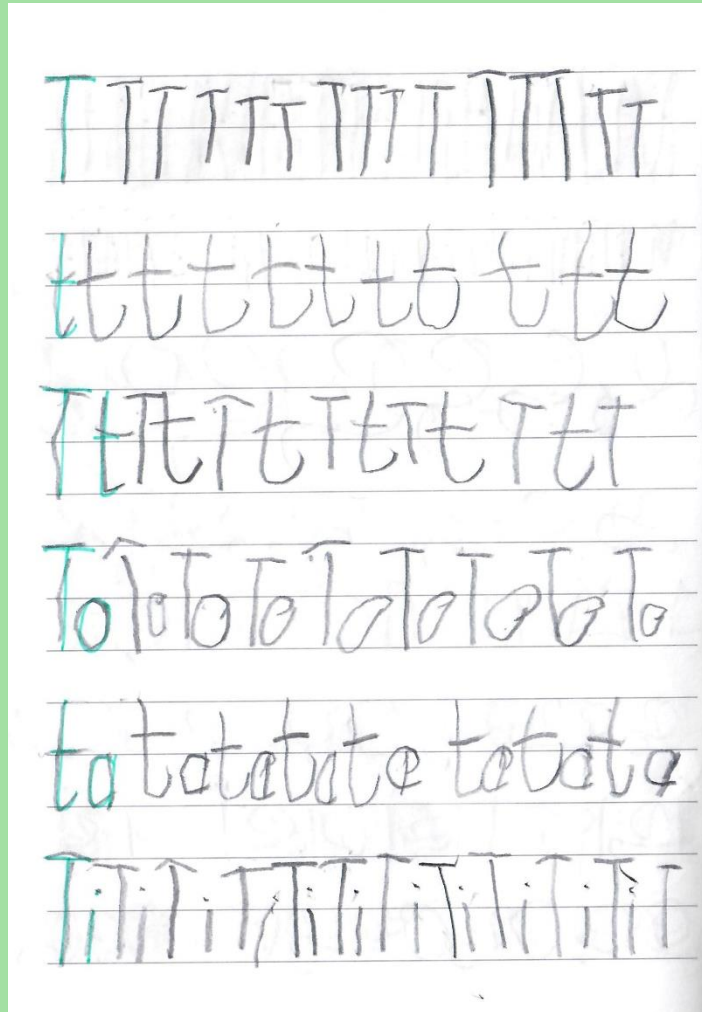 T T T T T T T T T T T T T T T
t t t t t t t t t t t
T t T t T t T t T t T t T
To To To To To To To To To
ta ta ta ta ta ta ta ta
Ti Ti Ti Ti Ti Ti Ti Ti Ti Ti Ti T